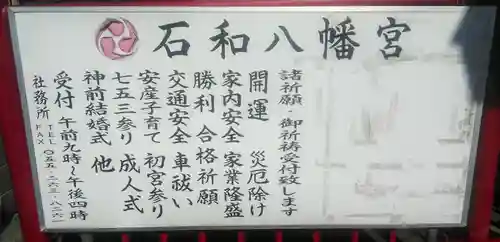 石和八幡宮
諸祈願・御祈祷受付致します
開運 災厄除け
家内安全 家業隆盛
勝利 合格祈願
交通安全 車祓い
安産子育て 初宮参り
七五三参り 成人式
神前結婚式 他
受付 午前九時〜午後四時
社務所 TEL FAX 〇五五-二六三-八二六二